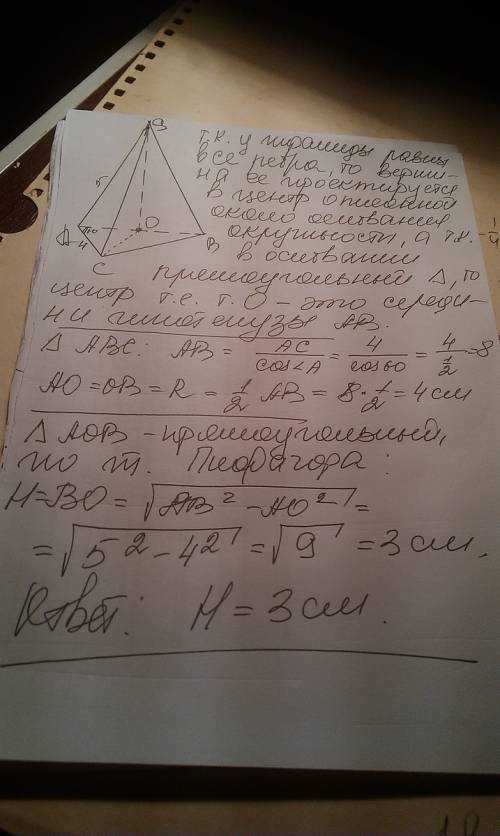 S
5
А
60
4
О
С
В
т.к. у пирамиды равны
все ребра, то верши-
на ее проектируется
в центр описанной
около основания
окружности, а т.к.
в основании
прямоугольный Δ, то
центр т.е. т. О – это середи-
ни гипотенузы АВ.
Δ АВС: АВ = AC / cos<A = 4 / cos60 = 4 / 1/2 = 8
АО = ОВ = R = 1/2 АВ = 8 · 1/2 = 4 см
Δ АОВ – прямоугольный,
по т. Пифагора:
Н = ВО = √АВ² – АО² =
= √5² – 4² = √9 = 3 см.
Ответ: Н = 3 см.